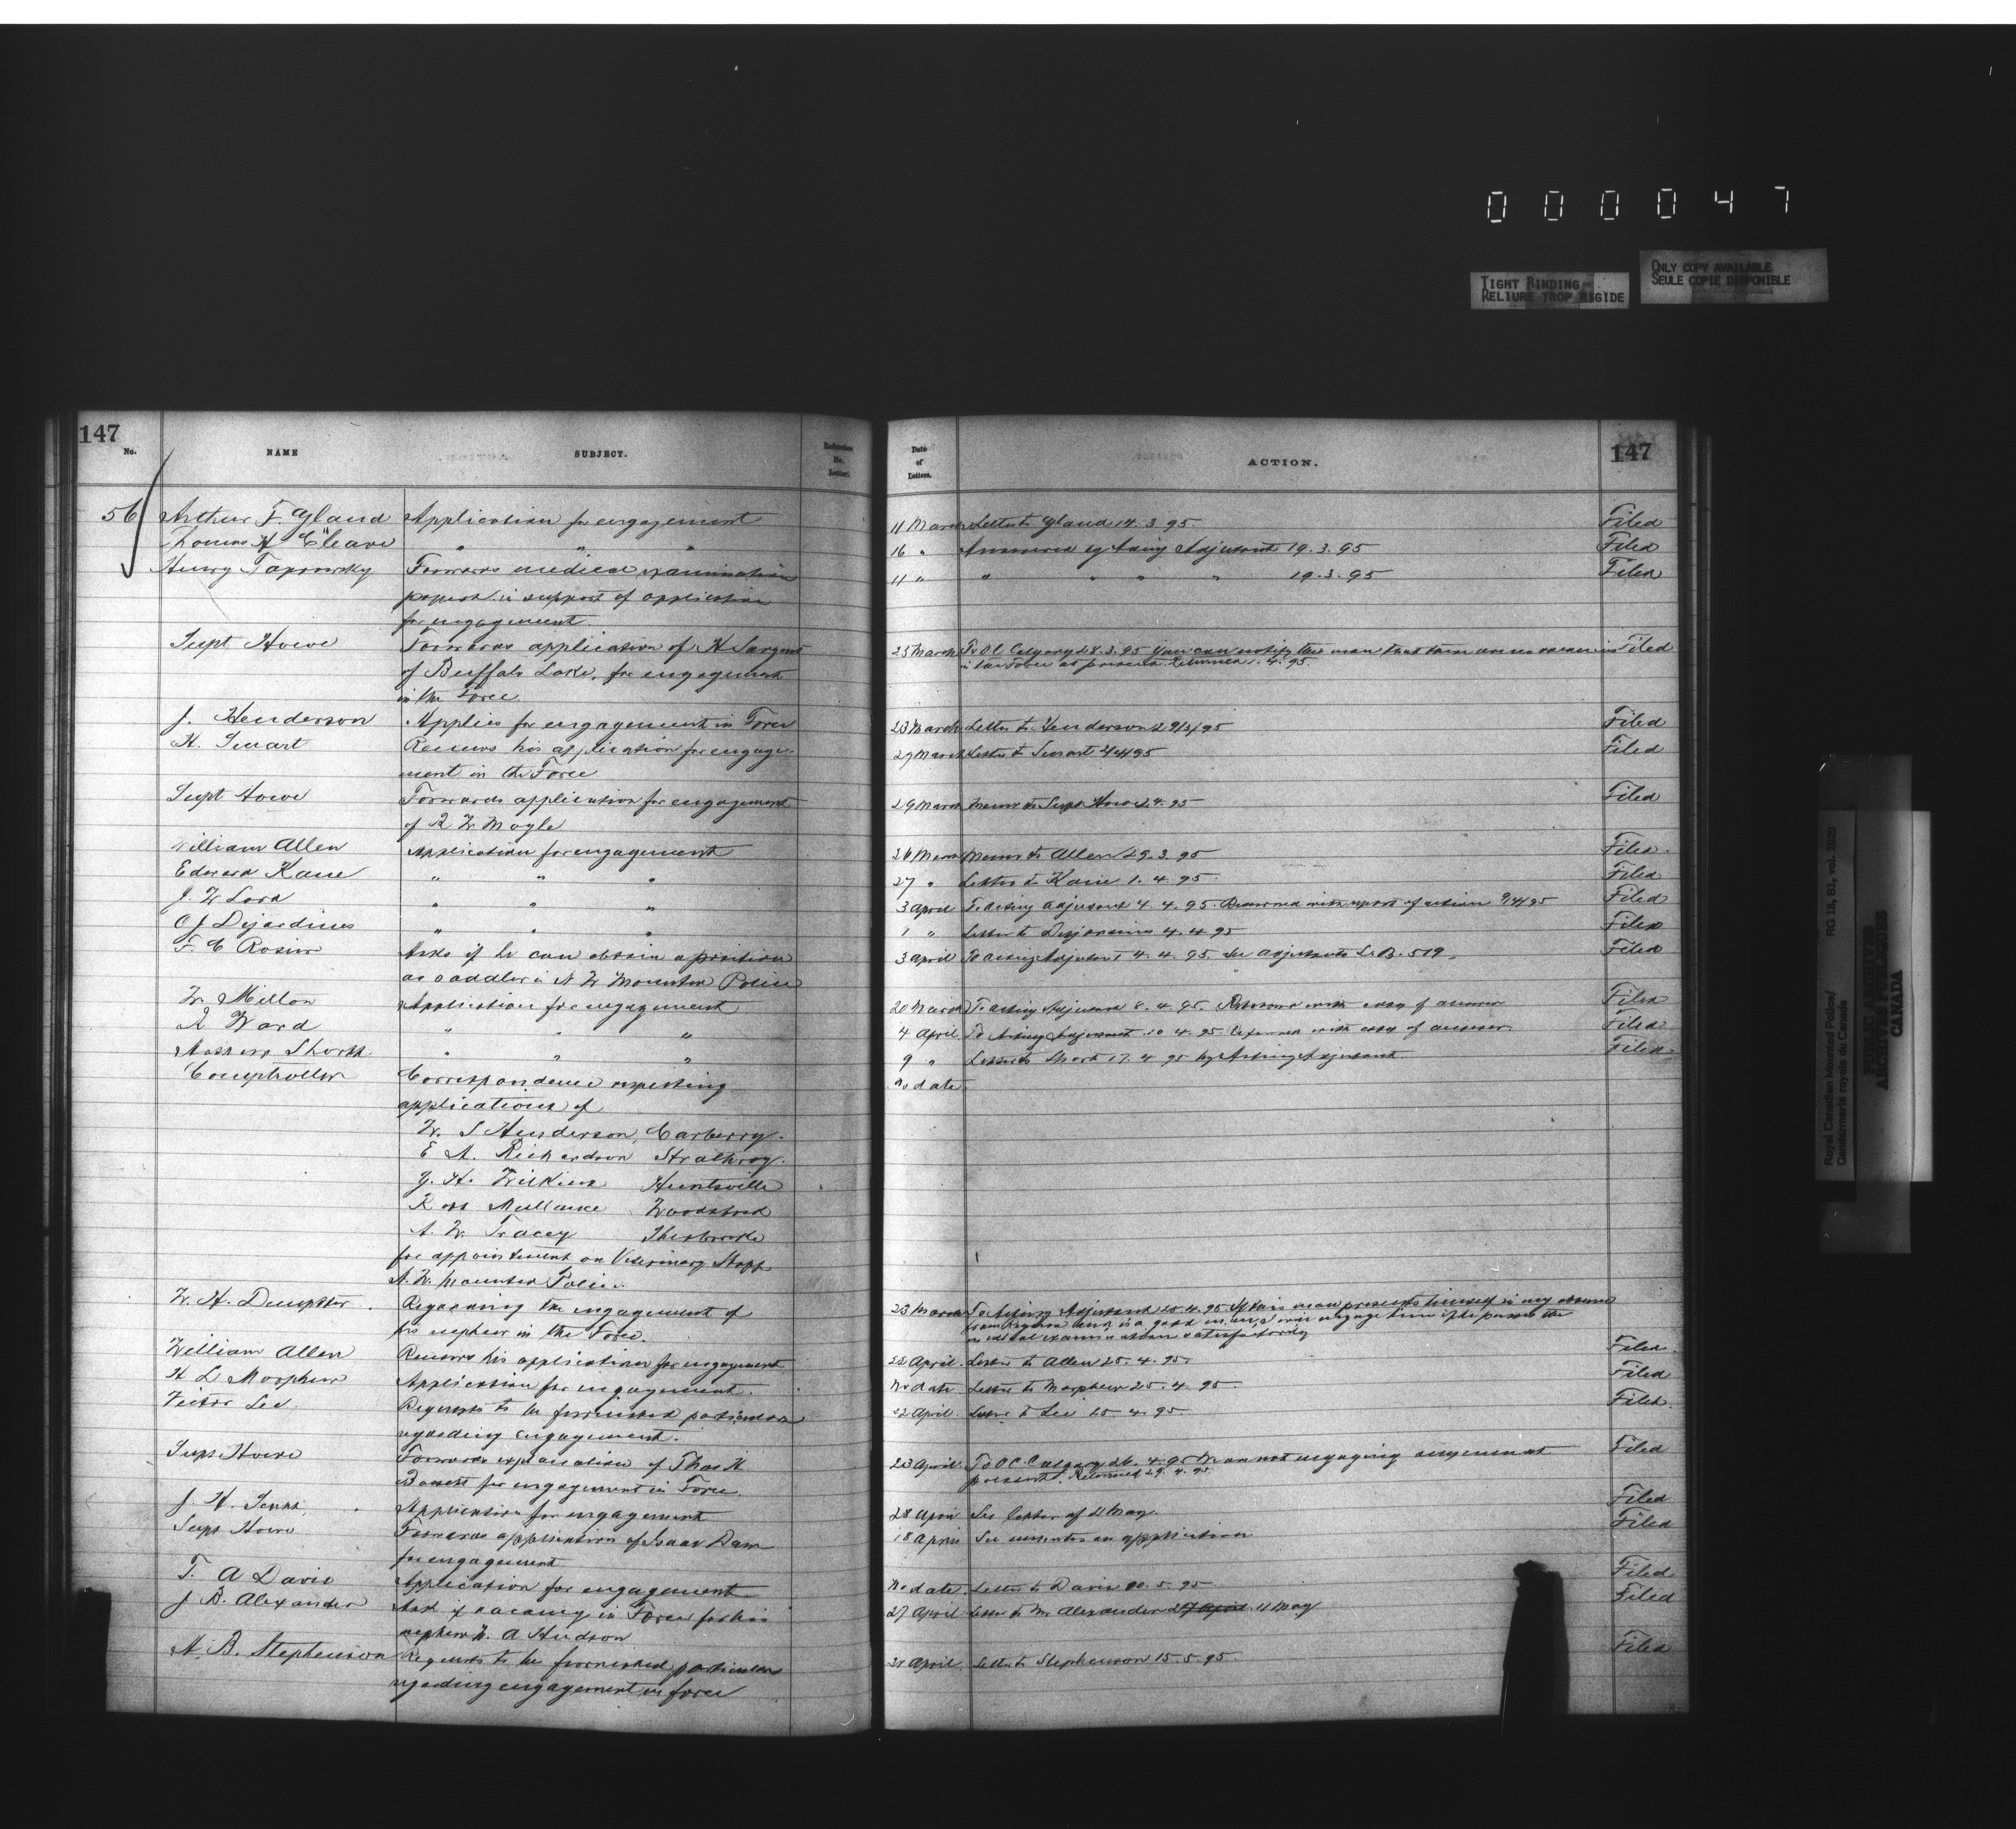 0 0 0 0 4 7
TIGHT BINDING
RELIURE TROP RIGIDE
ONLY COPY AVAILABLE
SEULE COPIE DISPONIBLE
147
No.
NAME
SUBJECT.
Reference No. Letter.
56 Arthur F. Gland Application for engagement
Thomas H Cleave " " "
Henry Forwards medical examination
papers in support of application
for engagement.
Supt Howe Forwards application of H Sargent
of Buffalo Lake, for engagement
in the Force
J. Henderson Applies for engagement in Force
H. Smart Renews his application for engage-
ment in the Force
Supt Howe Forwards application for engagement
of R W Mogle
William Allen Application for engagement
Edward Kane " " "
J. W Lord " " "
O J Dejardines " " "
F. C Rosier Asks if he can obtain a position
as saddler in N W Mounted Police
W. Millon Application for engagement
R Ward " " "
Short " " "
Comptroller Correspondence respecting
applications of
W. S Henderson, Carberry.
E A. Richardson Strathroy.
G. H. Wilkins Huntsville
Ross Woodstock
A. W. Tracey Sherbrooke
for appointment on Veterinary Staff
N. W. Mounted Police.
W. H. Dempster. Regarding the engagement of
his nephew in the Force.
William Allen Renews his application for engagement
H L Morphew Application for engagement.
Victor Lee. Requests to be furnished particulars
regarding engagement.
Supt Howe Forwards application of Thos H.
for engagement in Force.
J. H. Application for engagement
Supt Howe Forwards application of Isaac Dam
for engagement
T. A Davis Application for engagement
J B. Alexander Asks if vacancy in Force for his
nephew W. A Hudson
N. B. Stephenson Requests to be furnished particulars
regarding engagement in force
Date of Letters.
ACTION.
147
11 March Letter to Gland 14. 3. 95. Filed
16 " Answered by Acting Adjutant 19. 3. 95 Filed
11 " " " " " 19. 3. 95 Filed
25 March To O.C. Calgary 28. 3. 95 You can notify this man that there are no vacancies Filed
in the Force at present. Returned 1. 4. 95.
23 March Letter to Henderson 29/3/95 Filed
29 March Letter to Smart 4/4/95 Filed
29 March Memo to Supt Howe 2 4. 95 Filed
26 March Memo to Allen 29. 3. 95 Filed.
27 " Letter to Kane 1. 4. 95. Filed
3 April To Acting Adjutant 4. 4. 95. Returned with report of action 9/4/95 Filed
1 " Letter to Dejardines 4. 4. 95 Filed
3 April To Acting Adjutant 4. 4. 95. See Adjutants L. B. 519. Filed
20 March To Acting Adjutant 8. 4. 95. Returned with copy of answer Filed
4 April To Acting Adjutant 10 4. 95 Returned with copy of answer. Filed
9 " Letter to Short 17. 4 95 by Acting Adjutant Filed.
No date
23 March To Acting Adjutant 25. 4. 95 If this man presents himself in my absence
from Regina and is a good man, engage him if he passes the
medical examination satisfactorily
22 April. Letter to Allen 25. 4. 95. Filed.
No date Letter to Morphew 25. 4. 95. Filed
22 April. Letter to Lee 25 4. 95. Filed.
23 April To O C Calgary 26. 4. 95 We are not engaging anyone at Filed
present. Returned 29. 4. 95
28 April See letter of 21 May. Filed
18 April See minutes on application Filed
No date Letter to Davis 20. 5. 95 Filed
27 April Letter to Mr. Alexander 27 April 11 May Filed
21 April. Letter to Stephenson 15. 5. 95. Filed
Royal Canadian Mounted Police/
Gendarmerie royale du Canada
RG 18, B1, vol. 2020
PUBLIC ARCHIVES
ARCHIVES PUBLIQUES
CANADA